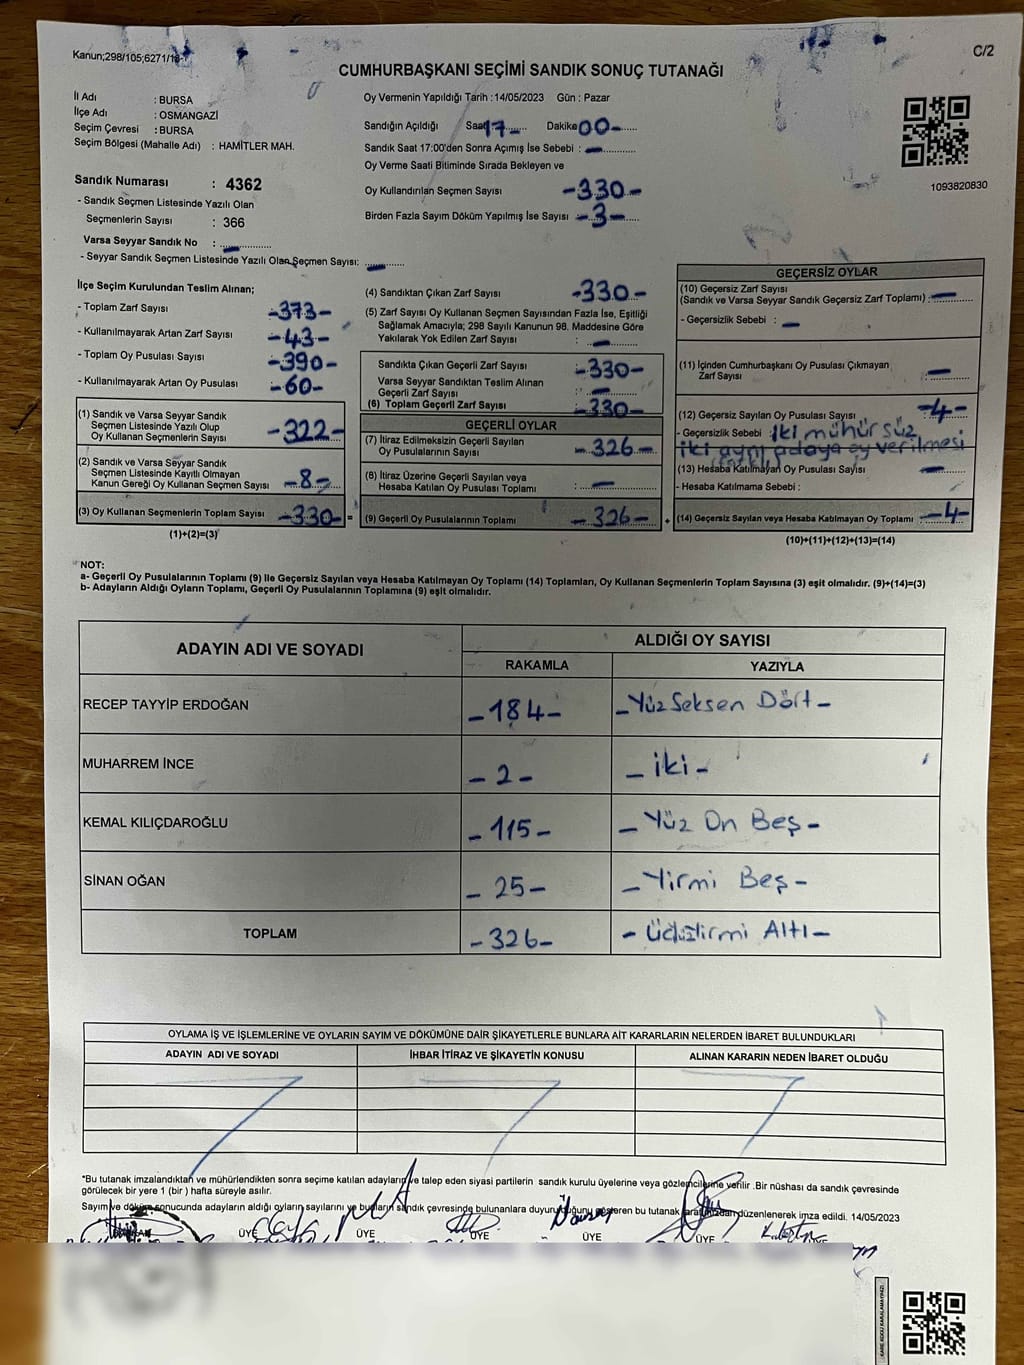 Kanun;298/105;6271/18-1
C/2
CUMHURBAŞKANI SEÇİMİ SANDIK SONUÇ TUTANAĞI
İl Adı : BURSA
İlçe Adı : OSMANGAZİ
Seçim Çevresi : BURSA
Seçim Bölgesi (Mahalle Adı) : HAMİTLER MAH.
Sandık Numarası : 4362
- Sandık Seçmen Listesinde Yazılı Olan
Seçmenlerin Sayısı : 366
Varsa Seyyar Sandık No :
- Seyyar Sandık Seçmen Listesinde Yazılı Olan Seçmen Sayısı:
Oy Vermenin Yapıldığı Tarih : 14/05/2023 Gün : Pazar
Sandığın Açıldığı Saat 17 Dakika 00
Sandık Saat 17:00'den Sonra Açımış İse Sebebi :
Oy Verme Saati Bitiminde Sırada Bekleyen ve
Oy Kullandırılan Seçmen Sayısı -330-
Birden Fazla Sayım Döküm Yapılmış İse Sayısı -3-
1093820830
İlçe Seçim Kurulundan Teslim Alınan;
- Toplam Zarf Sayısı -373-
- Kullanılmayarak Artan Zarf Sayısı -43-
- Toplam Oy Pusulası Sayısı -390-
- Kullanılmayarak Artan Oy Pusulası -60-
(1) Sandık ve Varsa Seyyar Sandık
Seçmen Listesinde Yazılı Olup
Oy Kullanan Seçmenlerin Sayısı -322-
(2) Sandık ve Varsa Seyyar Sandık
Seçmen Listesinde Kayıtlı Olmayan
Kanun Gereği Oy Kullanan Seçmen Sayısı -8-
(3) Oy Kullanan Seçmenlerin Toplam Sayısı -330- =
(1)+(2)=(3)
(4) Sandıktan Çıkan Zarf Sayısı -330-
(5) Zarf Sayısı Oy Kullanan Seçmen Sayısından Fazla İse, Eşitliği
Sağlamak Amacıyla; 298 Sayılı Kanunun 98. Maddesine Göre
Yakılarak Yok Edilen Zarf Sayısı :
Sandıkta Çıkan Geçerli Zarf Sayısı -330-
Varsa Seyyar Sandıktan Teslim Alınan
Geçerli Zarf Sayısı :
(6) Toplam Geçerli Zarf Sayısı -330-
GEÇERLİ OYLAR
(7) İtiraz Edilmeksizin Geçerli Sayılan
Oy Pusulalarının Sayısı - 326 -
(8) İtiraz Üzerine Geçerli Sayılan veya
Hesaba Katılan Oy Pusulası Toplamı :
(9) Geçerli Oy Pusulalarının Toplamı - 326 - +
GEÇERSİZ OYLAR
(10) Geçersiz Zarf Sayısı
(Sandık ve Varsa Seyyar Sandık Geçersiz Zarf Toplamı) :
- Geçersizlik Sebebi :
(11) İçinden Cumhurbaşkanı Oy Pusulası Çıkmayan
Zarf Sayısı
(12) Geçersiz Sayılan Oy Pusulası Sayısı -4-
- Geçersizlik Sebebi : İki mühürsüz
iki ayrı adaya oy verilmesi
(13) Hesaba Katılmayan Oy Pusulası Sayısı
- Hesaba Katılmama Sebebi :
(14) Geçersiz Sayılan veya Hesaba Katılmayan Oy Toplamı : -4-
(10)+(11)+(12)+(13)=(14)
NOT:
a- Geçerli Oy Pusulalarının Toplamı (9) ile Geçersiz Sayılan veya Hesaba Katılmayan Oy Toplamı (14) Toplamları, Oy Kullanan Seçmenlerin Toplam Sayısına (3) eşit olmalıdır. (9)+(14)=(3)
b- Adayların Aldığı Oyların Toplamı, Geçerli Oy Pusulalarının Toplamına (9) eşit olmalıdır.
ADAYIN ADI VE SOYADI
ALDIĞI OY SAYISI
RAKAMLA YAZIYLA
RECEP TAYYİP ERDOĞAN -184- -Yüz Seksen Dört-
MUHARREM İNCE - 2 - - İki -
KEMAL KILIÇDAROĞLU - 115 - - Yüz On Beş -
SİNAN OĞAN - 25 - - Yirmi Beş -
TOPLAM -326- Altı -
OYLAMA İŞ VE İŞLEMLERİNE VE OYLARIN SAYIM VE DÖKÜMÜNE DAİR ŞİKAYETLERLE BUNLARA AİT KARARLARIN NELERDEN İBARET BULUNDUKLARI
ADAYIN ADI VE SOYADI İHBAR İTİRAZ VE ŞİKAYETİN KONUSU ALINAN KARARIN NEDEN İBARET OLDUĞU
*Bu tutanak imzalandıktan ve mühürlendikten sonra seçime katılan adayların ve talep eden siyasi partilerin sandık kurulu üyelerine veya gözlemcilerine verilir .Bir nüshası da sandık çevresinde
görülecek bir yere 1 (bir ) hafta süreyle asılır.
Sayım ve döküm sonucunda adayların aldığı oyların sayılarını ve bunların sandık çevresinde bulunanlara duyurulduğunu gösteren bu tutanak tarafımızdan düzenlenerek imza edildi. 14/05/2023
ÜYE ÜYE ÜYE ÜYE ÜYE